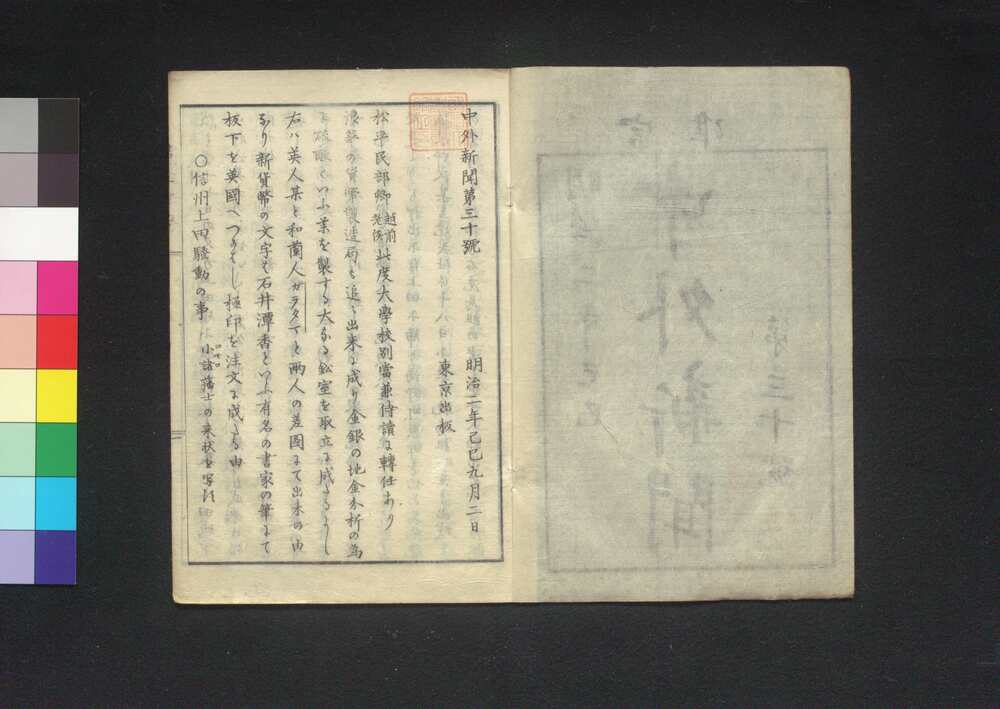 中外新聞第三十號
明治二年己巳九月二日
東京出板
松平民部卿越前老侯此度大學校別當兼侍讀に轉任あり
浪華の貨幣製造局も追々出来に成り金銀の地金分析の為
硫酸といふ薬を製する大なる鉛室を取立に成たるよし
右ハ英人某と和蘭人ガラタマと両人の差圖にて出来の由
なり新貨幣の文字は石井潭香といふ有名の書家の筆にて
板下を英國へつかはし極印を注文に成たる由
〇信州上田騒動の事 小諸藩士の来状を写す